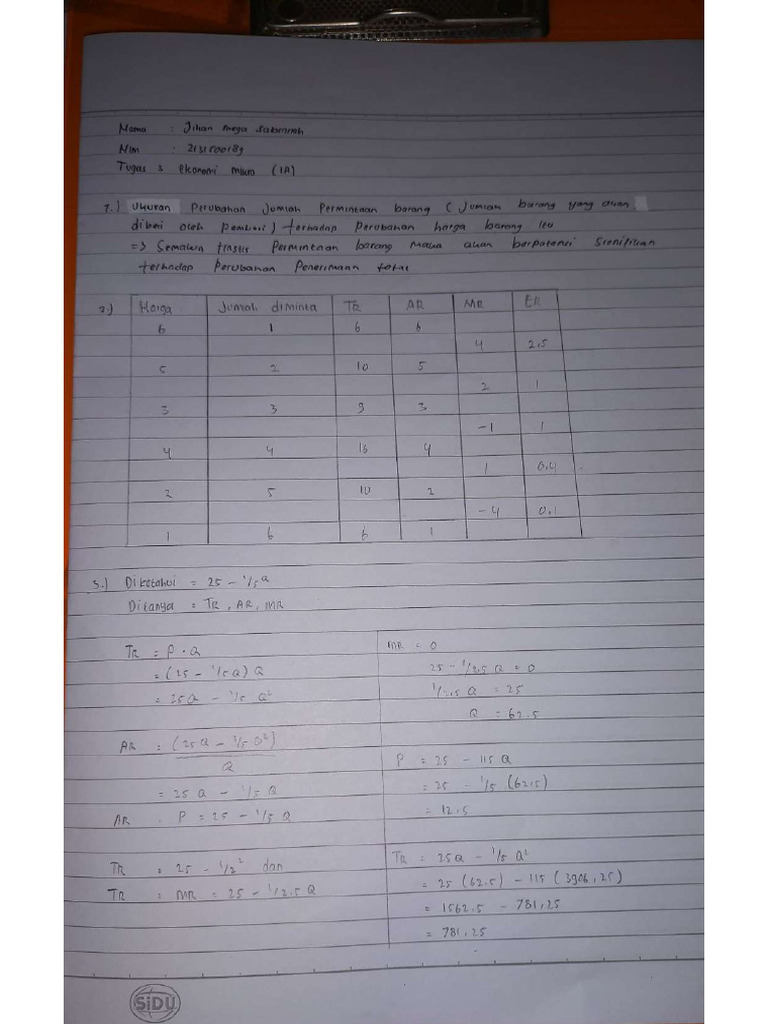 Nama : Jihan mega sabanirah
Nim : 2131500189
Tugas 3 ekonomi mikro (1A)
1.) Ukuran Perubahan Jumlah Permintaan barang ( Jumlah barang yang akan
dibeli oleh pembeli ) terhadap perubahan harga barang itu
=> Semakin Elastis Permintaan barang maka akan berpotensi Signifikan
terhadap Perubahan Penerimaan total
2.) Harga Jumlah diminta TR AR MR ER
6 1 6 6
4 2.5
5 2 10 5
2 1
3 3 9 3
-1 1
4 4 16 4
1 0.4
2 5 10 2
-4 0.1
1 6 6 1
3.) Diketahui = 25 - 1/5 Q
Ditanya = TR, AR, MR
TR = P . Q
= (25 - 1/5 Q) Q
= 25 Q - 1/5 Q²
AR = (25 Q - 1/5 Q²)
Q
= 25 Q - 1/5 Q
AR . P = 25 - 1/5 Q
TR = 25 - 1/2² dan
TR = MR = 25 - 1/2.5 Q
MR = 0
25 - 1/2.5 Q = 0
1/2.5 Q = 25
Q = 62.5
P = 25 - 115 Q
= 25 - 1/5 (62.5)
= 12.5
TR = 25 Q - 1/5 Q²
= 25 (62.5) - 115 (3906,25)
= 1562.5 - 781,25
= 781,25
SiDU